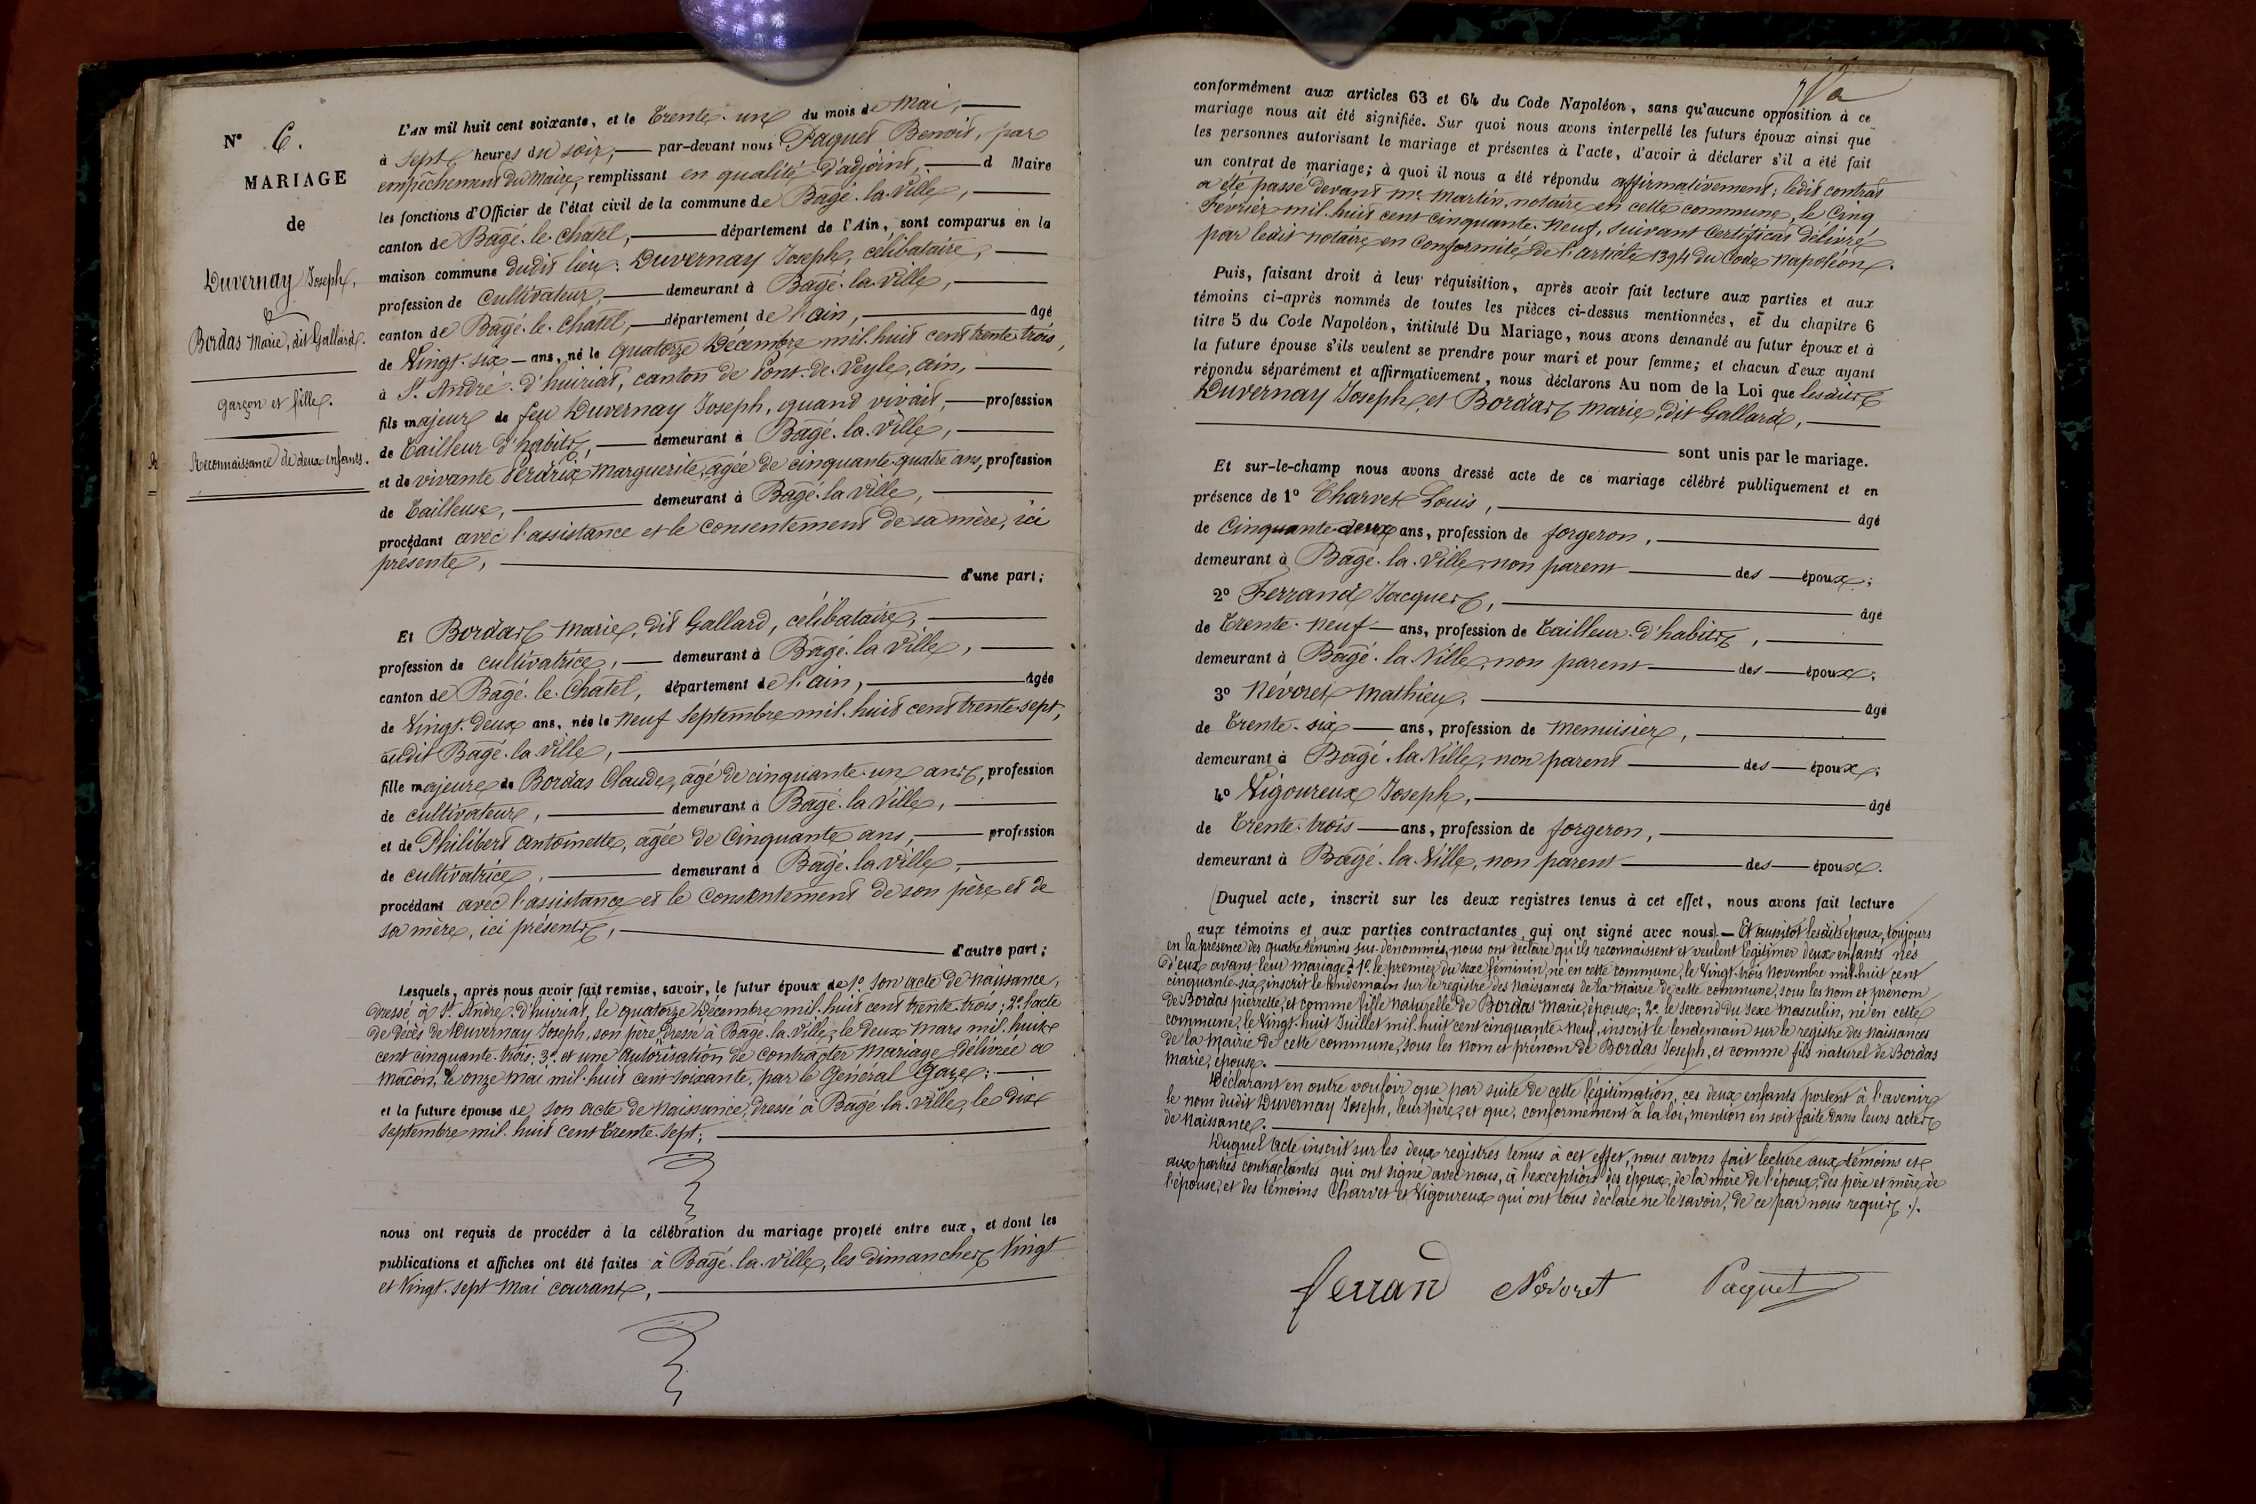 N° 6.
MARIAGE
de
Duvernay Joseph,
&
Bordas Marie, dit Gallard.
garçon et fille.
Reconnaissance de deux enfants.
L'AN mil huit cent soixante, et le trente-un du mois de Mai,
à sept heures du soir, par-devant nous Paquet Benoit, par
empêchement du Maire, remplissant en qualité d'adjoint, d Maire
les fonctions d'Officier de l'état civil de la commune de Bâgé-la-Ville,
canton de Bâgé-le-Châtel, département de l'Ain, sont comparus en la
maison commune dudit lieu: Duvernay Joseph, célibataire,
profession de cultivateur, demeurant à Bâgé-la-Ville,
canton de Bâgé-le-Châtel, département de l'ain, âgé
de Vingt-six ans, né le quatorze Décembre mil-huit cent trente-trois,
à St. André-d'huiriat, canton de Pont-de-Veyle, ain,
fils majeur de feu Duvernay Joseph, quand vivait, profession
de tailleur d'habits, demeurant à Bâgé-la-Ville,
et de vivante Perdrix Marguerite, âgée de cinquante-quatre ans, profession
de tailleuse, demeurant à Bâgé-la-Ville,
procédant avec l'assistance et le consentement de sa mère, ici
présente, d'une part;
Et Bordas Marie, dit Gallard, célibataire,
profession de cultivatrice, demeurant à Bâgé-la-Ville,
canton de Bâgé-le-Châtel, département de l'ain, âgée
de Vingt-deux ans, née le neuf septembre mil-huit cent trente-sept,
audit Bâgé-la-Ville,
fille majeure de Bordas Claude, âgé de cinquante-un ans, profession
de cultivateur, demeurant à Bâgé-la-Ville,
et de Philibert antoinette, âgée de cinquante ans, profession
de cultivatrice, demeurant à Bâgé-la-Ville,
procédant avec l'assistance et le consentement de son père et de
sa mère, ici présents, d'autre part;
Lesquels, après nous avoir fait remise, savoir, le futur époux de 1° son acte de naissance,
dressé à St. André-d'huiriat, le quatorze Décembre mil-huit cent trente-trois; 2° l'acte
de décès de Duvernay Joseph, son père, dressé à Bâgé-la-Ville, le deux Mars mil-huit
cent cinquante-trois; 3° et une autorisation de contracter Mariage, délivrée à
Mâcon, le onze Mai mil-huit cent soixante, par le Général Gaze;
et la future épouse de son acte de naissance, dressé à Bâgé-la-Ville, le dix
septembre mil-huit cent trente-sept;
nous ont requis de procéder à la célébration du mariage projeté entre eux, et dont les
publications et affiches ont été faites à Bâgé-la-Ville, les dimanches Vingt
et Vingt-sept Mai courant,
conformément aux articles 63 et 64 du Code Napoléon, sans qu'aucune opposition à ce
mariage nous ait été signifiée. Sur quoi nous avons interpellé les futurs époux ainsi que
les personnes autorisant le mariage et présentes à l'acte, d'avoir à déclarer s'il a été fait
un contrat de mariage; à quoi il nous a été répondu affirmativement; ledit contrat
a été passé devant Me. Martin, notaire en cette commune, le Cinq
Février mil-huit cent cinquante-neuf, suivant certificat délivré
par ledit notaire en conformité de l'article 1394 du Code Napoléon.
Puis, faisant droit à leur réquisition, après avoir fait lecture aux parties et aux
témoins ci-après nommés de toutes les pièces ci-dessus mentionnées, et du chapitre 6
titre 5 du Code Napoléon, intitulé Du Mariage, nous avons demandé au futur époux et à
la future épouse s'ils veulent se prendre pour mari et pour femme; et chacun d'eux ayant
répondu séparément et affirmativement, nous déclarons Au nom de la Loi que lesdits
Duvernay Joseph, et Bordas Marie, dit Gallard,
sont unis par le mariage.
Et sur-le-champ nous avons dressé acte de ce mariage célébré publiquement et en
présence de 1° Charvet Louis, âgé
de Cinquante-deux ans, profession de forgeron,
demeurant à Bâgé-la-Ville, non parent des époux;
2° Ferrand Jacques, âgé
de trente-neuf ans, profession de tailleur d'habits,
demeurant à Bâgé-la-Ville, non parent des époux;
3° Névoret Mathieu, âgé
de trente-six ans, profession de menuisier,
demeurant à Bâgé-la-Ville, non parent des époux;
4° Vigoureux Joseph, âgé
de trente-trois ans, profession de forgeron,
demeurant à Bâgé-la-Ville, non parent des époux.
(Duquel acte, inscrit sur les deux registres tenus à cet effet, nous avons fait lecture
aux témoins et aux parties contractantes qui ont signé avec nous). Et aussitôt lesdits époux, toujours
en la présence des quatre témoins sus-dénommés, nous ont déclaré qu'ils reconnaissent et veulent légitimer deux enfants nés
d'eux avant leur mariage: 1° le premier du sexe féminin, né en cette commune, le Vingt-trois Novembre mil-huit cent
cinquante-six, inscrit le lendemain sur le registre des naissances de la Mairie de cette commune, sous les nom et prénom
de Bordas pierrette, et comme fille naturelle de Bordas Marie, épouse; 2° le second du sexe masculin, né en cette
commune, le Vingt-huit Juillet mil-huit cent cinquante-neuf, inscrit le lendemain sur le registre des naissances
de la Mairie de cette commune, sous les nom et prénom de Bordas Joseph, et comme fils naturel de Bordas
Marie, épouse.
Déclarant en outre vouloir que par suite de cette légitimation, ces deux enfants portent à l'avenir
le nom dudit Duvernay Joseph, leur père, et que, conformément à la loi, mention en soit faite dans leurs actes
de naissance.
Duquel acte inscrit sur les deux registres tenus à cet effet, nous avons fait lecture aux témoins et
aux parties contractantes qui ont signé avec nous, à l'exception des époux, de la mère de l'époux, des père et mère de
l'épouse, et des témoins Charvet et Vigoureux qui ont tous déclaré ne le savoir, de ce par nous requis ./.
ferrand Névoret Paquet